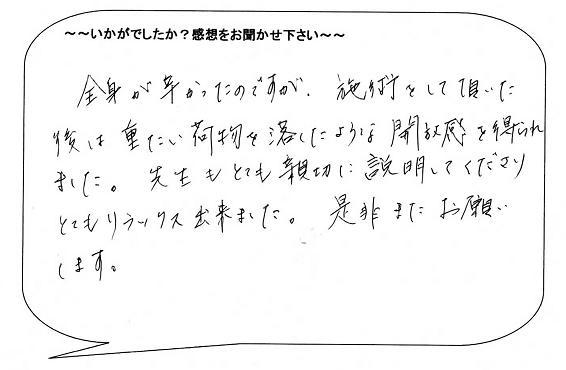 ~~いかがでしたか?感想をお聞かせ下さい~~
全身が辛かったのですが、施術をして頂いた
後は重たい荷物を落したような開放感を得られ
ました。先生もとても親切に説明してくださり
とてもリラックス出来ました。是非またお願い
します。